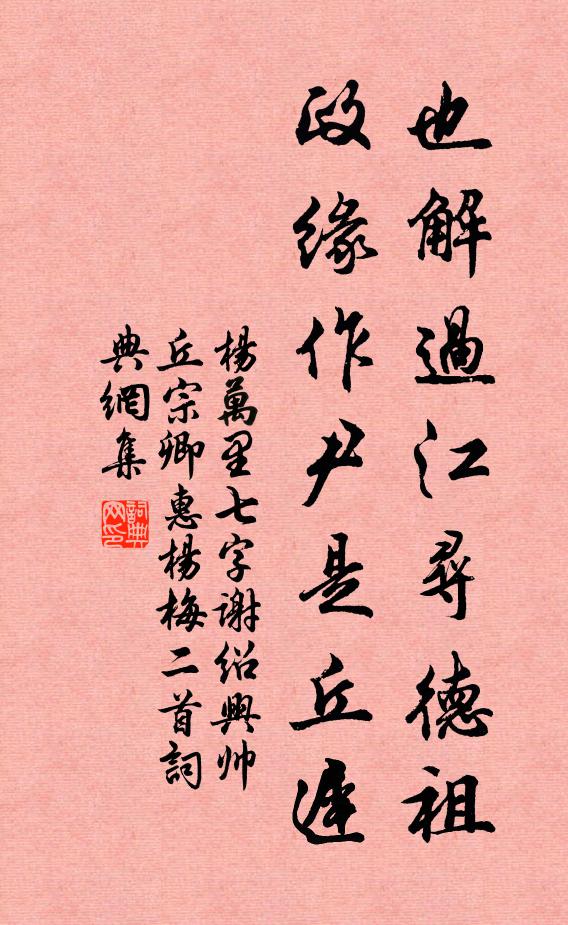 也解過江尋德祖
政緣作尹是丘遲
楊萬里七字謝紹興帅
丘宗卿惠楊梅二首詞
典網集
詞典
网印